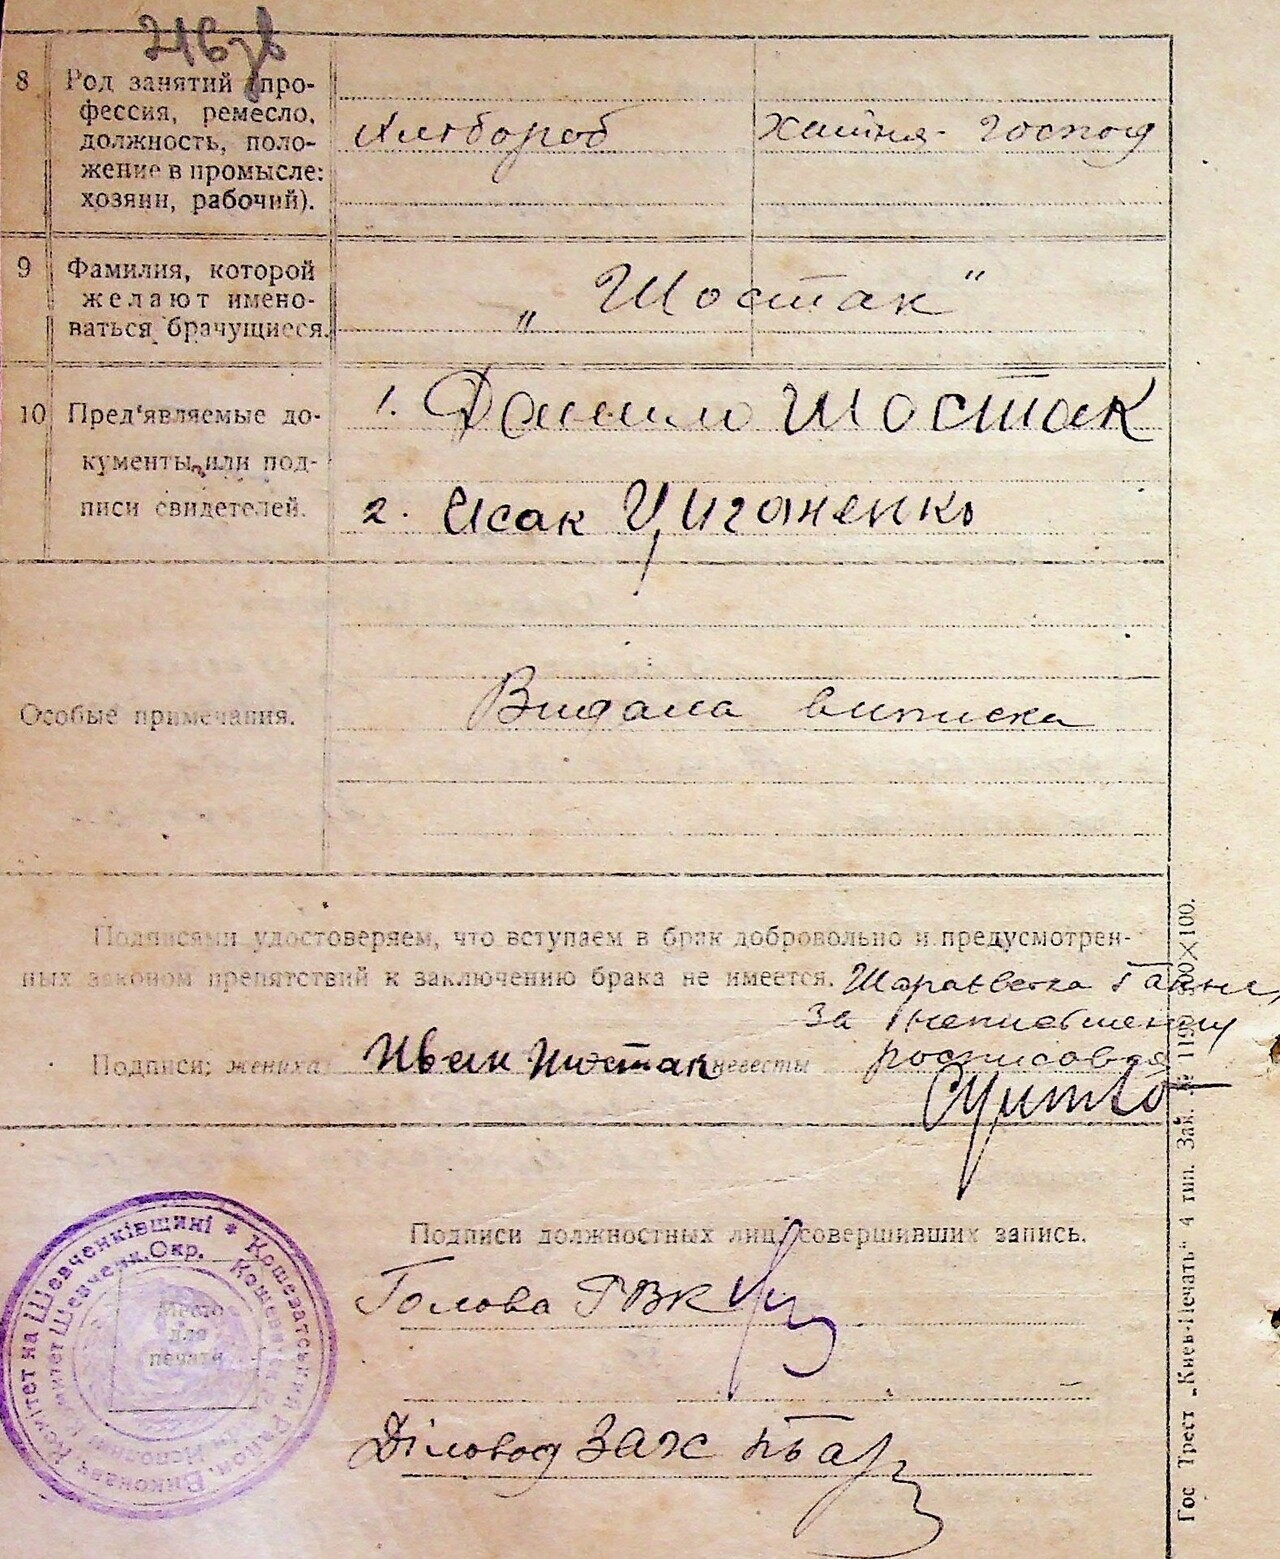 216 зв
8 Род занятий (про-
фессия, ремесло,
должность, поло-
жение в промысле:
хозяин, рабочий).
Хлебороб
хатня - господ
9 Фамилия, которой
желают имено-
ваться брачущиеся.
„ Шостак “
10 Пред'являемые до-
кументы или под-
писи свидетелей.
1. Данило Шостак
2. Исак Циганенко
Особые примечания.
Видана виписка
Подписями удостоверяем, что вступаем в брак добровольно и предусмотрен-
ных законом препятствий к заключению брака не имеется.
Ганна,
за
росписовся
Подписи; жениха Иван Шостак невесты
Подписи должностных лиц, совершивших запись.
Голова РВК
Діловод ЗАГС
Место
для
печати
Виконавч. Комітет на Шевченківщині * Кошеватський Район.
Шевченк. Окр.
Гос Трест „Киев-Печать“ 4 тип. Зак. № 1190 500×100.